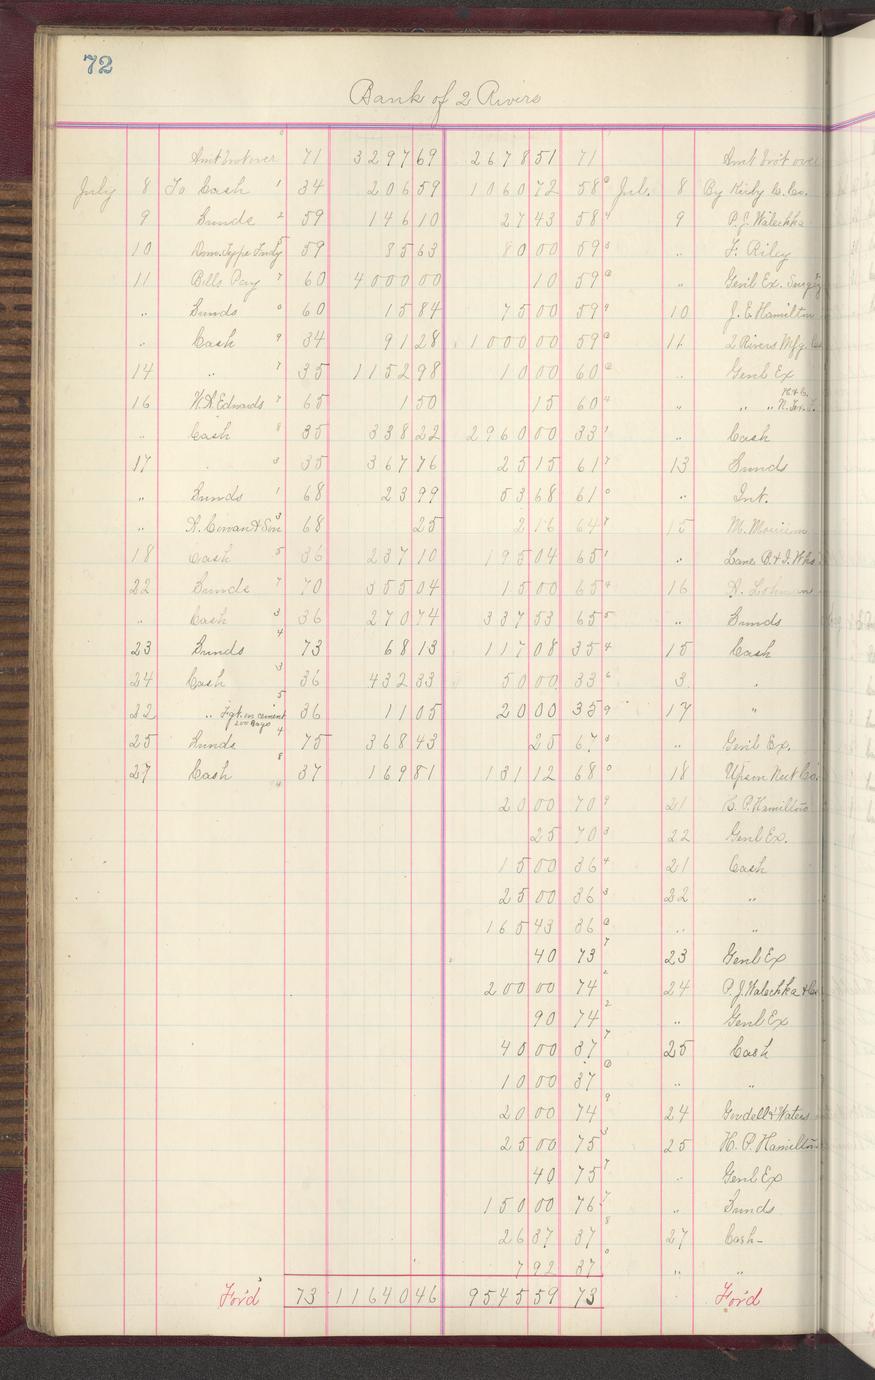 72
Bank of 2 Rivers
Amt brot over 71 3297 69 2678 51 71 Amt brot over
July 8 To Cash 1 34 206 59 1060 72 58 0 Jul. 8 By Kirby C. Co.
9 Sunds 2 59 146 10 27 43 58 9 P. J. Walechka
10 59 85 63 80 00 59 " F. Riley
11 Bills Pay 7 60 4000 00 10 59 " Genl Ex.
" Sunds 0 60 15 84 75 00 59 9 10 J. E. Hamilton
" Cash 9 34 91 28 1000 00 59 11 2 Rivers Mfg.
14 " 7 35 1152 98 10 00 60 " Genl Ex
16 W. H. Edwards 7 65 1 50 15 60 " " "
" Cash 8 35 338 22 2960 00 33 1 " Cash
17 35 367 76 25 15 61 7 13 Sunds
" Sunds 1 68 23 99 53 68 61 0 " Int.
" A. Cowan & Son 3 68 25 2 16 64 15 M.
18 Cash 5 36 237 10 195 04 65 1 " Lane
22 Sunds 7 70 355 04 15 00 65 4 16
" Cash 3 36 270 74 337 53 65 5 " Sunds
23 Sunds 4 73 68 13 117 08 35 4 15 Cash
24 Cash 3 36 432 33 50 00 33 6 3 "
22 " Fgt. on cement 200 Bags 5 36 11 05 20 00 35 9 17 "
25 Sunds 4 75 368 43 25 67 " Genl Ex.
27 Cash 8 37 169 81 131 12 68 0 18 Upson Nut Co.
20 00 70 9 21 Hamilton
25 70 3 22 Genl Ex.
15 00 36 4 21 Cash
25 00 36 3 22 "
165 43 36 " "
40 73 7 23 Genl Ex
200 00 74 2 24 P. J. Walechka & Co
90 74 2 " Genl Ex
40 00 37 7 25 Cash
10 00 37 " "
20 00 74 9 24 Goodell & Waters
25 00 75 3 25 H. P. Hamilton
40 75 7 " Genl Ex
150 00 76 7 " Sunds
26 37 37 8 27 Cash-
7 92 37 0 " "
For'd 73 11640 46 9545 59 73 For'd